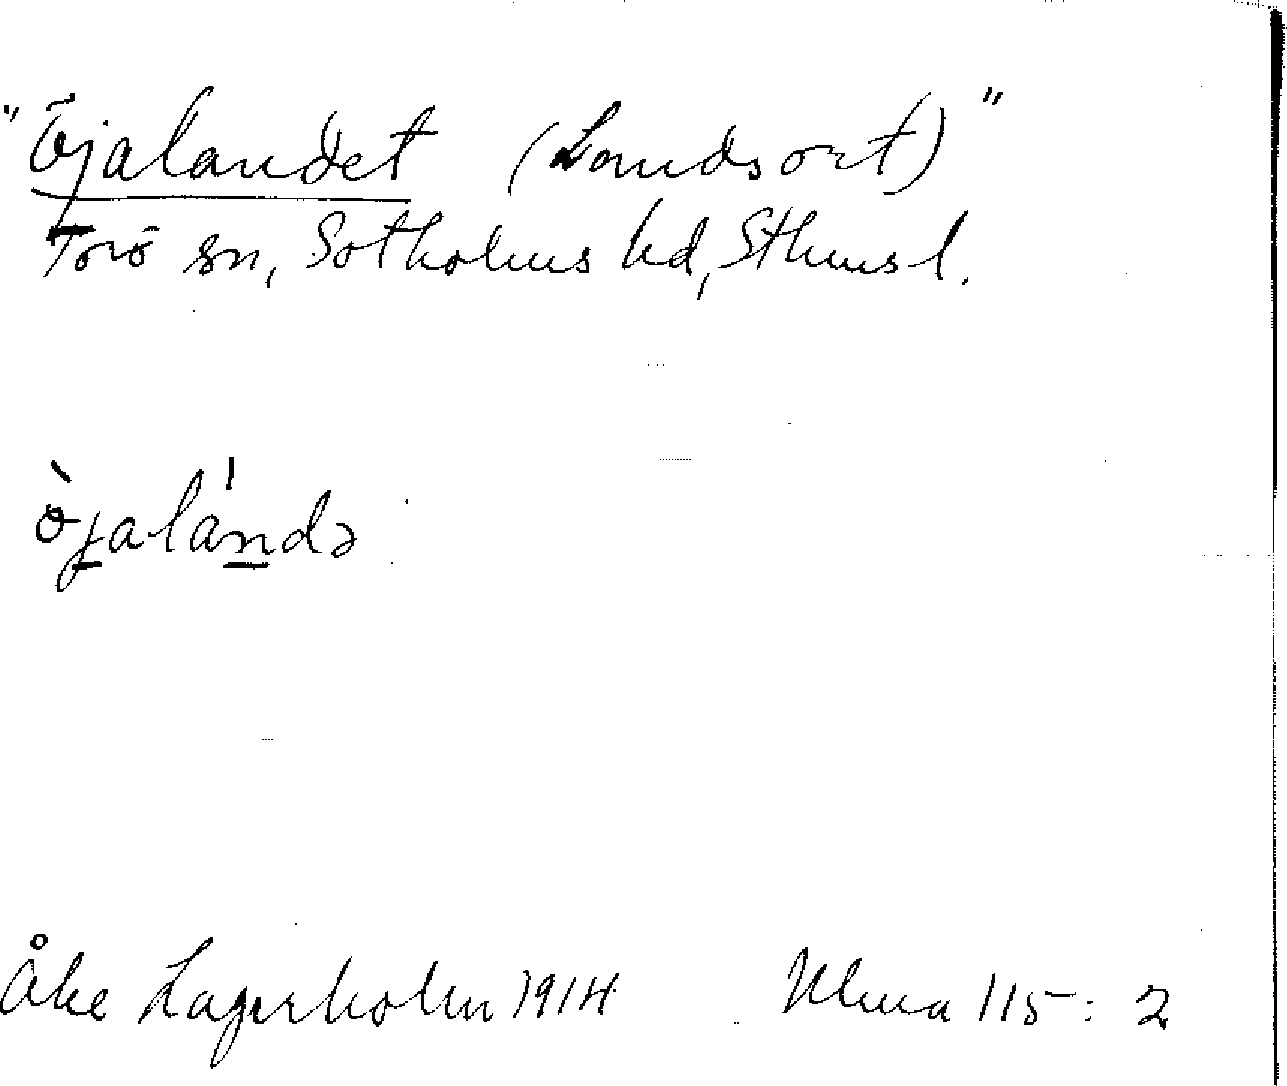 "Öjalandet (Landsort)"
Torö sn, Sotholms hd, Sthms l.
ö̀jalándə
Åke Lagerholm 1914 Ulma 115:2